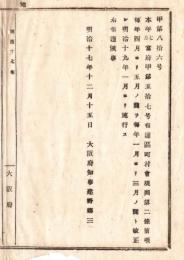 甲第八拾六号
本年當府甲第五拾七号布達區町村會規則第二條第項
毎年四月ヨリ五月ノ間ヲ毎年一月ヨリ三月ノ間ト改正
シ明治十九年一月ヨリ施行ス
右布達候事
明治十七年十二月十五日
大阪府知事建野郷三
大阪府